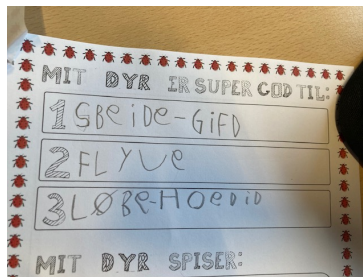 MIT DYR ER SUPER GOD TIL:
1 SBeiDe-GiFD
2 FLYVe
3 LØBe-HOeDiD
MIT DYR SPISER: